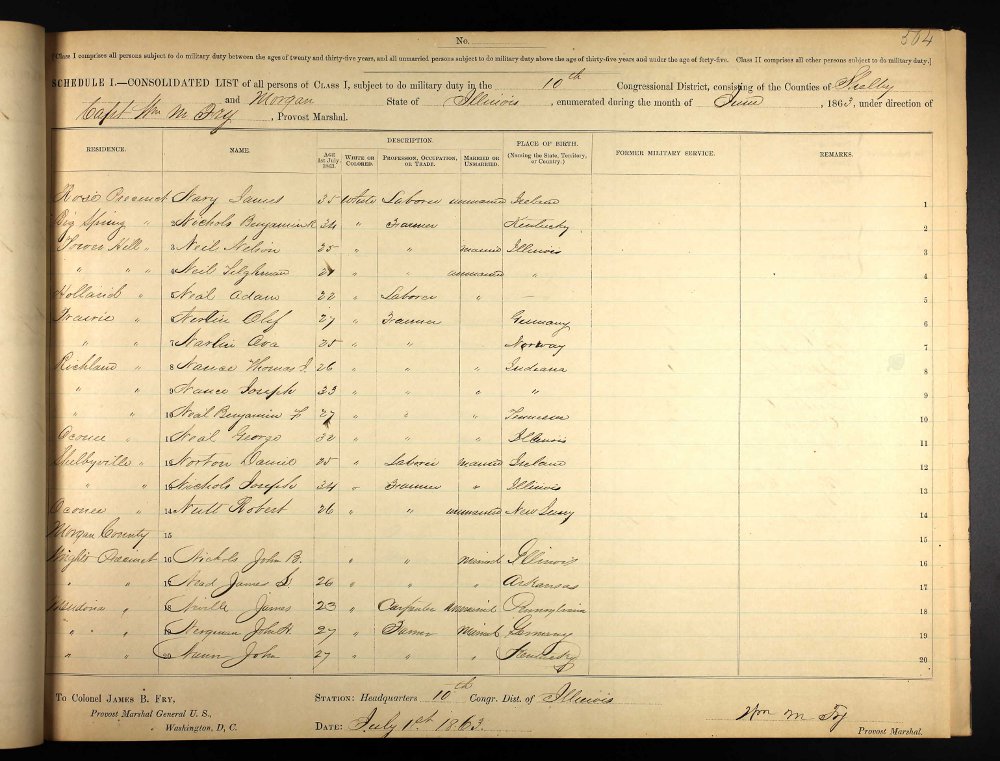 No.
564
[Class I comprises all persons subject to do military duty between the ages of twenty and thirty-five years, and all unmarried persons subject to do military duty above the age of thirty-five years and under the age of forty-five. Class II comprises all other persons subject to do military duty.]
SCHEDULE I.—CONSOLIDATED LIST of all persons of CLASS I, subject to do military duty in the 10th Congressional District, consisting of the Counties of Shelby
and Morgan State of Illinois, enumerated during the month of June, 1863, under direction of
Capt Wm M Fry, Provost Marshal.
RESIDENCE. NAME. DESCRIPTION. PLACE OF BIRTH. FORMER MILITARY SERVICE. REMARKS.
AGE 1st July, 1863. WHITE OR COLORED. PROFESSION, OCCUPATION, OR TRADE. MARRIED OR UNMARRIED. (Naming the State, Territory, or Country.)
Rose Precinct Nary James 35 White Laborer unmarried Ireland 1
Big Spring " 2 Nichols Benjamin R 34 " Farmer Kentucky 2
Tower Hill " 3 Neil Nelson 25 " " married Illinois 3
" " " 4 Neil 21 " unmarried " 4
Holland " 5 Neal Adam 22 " Laborer " — 5
Prairie " 6 Olef 27 " Farmer Germany 6
" " 7 Narlin 25 " " Norway 7
Richland " 8 Nance Thomas J. 26 " " " Indiana 8
" " 9 Nance Joseph 23 " " " " 9
" " 10 Neal Benjamin F 27 " " " Tennessee 10
Oconee " 11 Neal George 32 " " " Illinois 11
Shelbyville " 12 Norton Daniel 25 " Laborer married Ireland 12
" " 13 Nichols Joseph 34 " Farmer " Illinois 13
Oconee " 14 Robert 26 " " unmarried New Jersey 14
Morgan County 15 15
Wrights Precinct 16 Nichols John B. " " Married Illinois 16
" " 17 Nead James S. 26 " " " Arkansas 17
" 18 Neville James 23 " Carpenter Unmarried Pennsylvania 18
" " 19 John H. 27 " Farmer Married Germany 19
" " 20 Nunn John 27 " " " Kentucky 20
To Colonel JAMES B. FRY,
Provost Marshal General U. S.,
Washington, D. C.
STATION: Headquarters 10th Congr. Dist. of Illinois
DATE: July 1st 1863.
Wm M Fry
Provost Marshal.